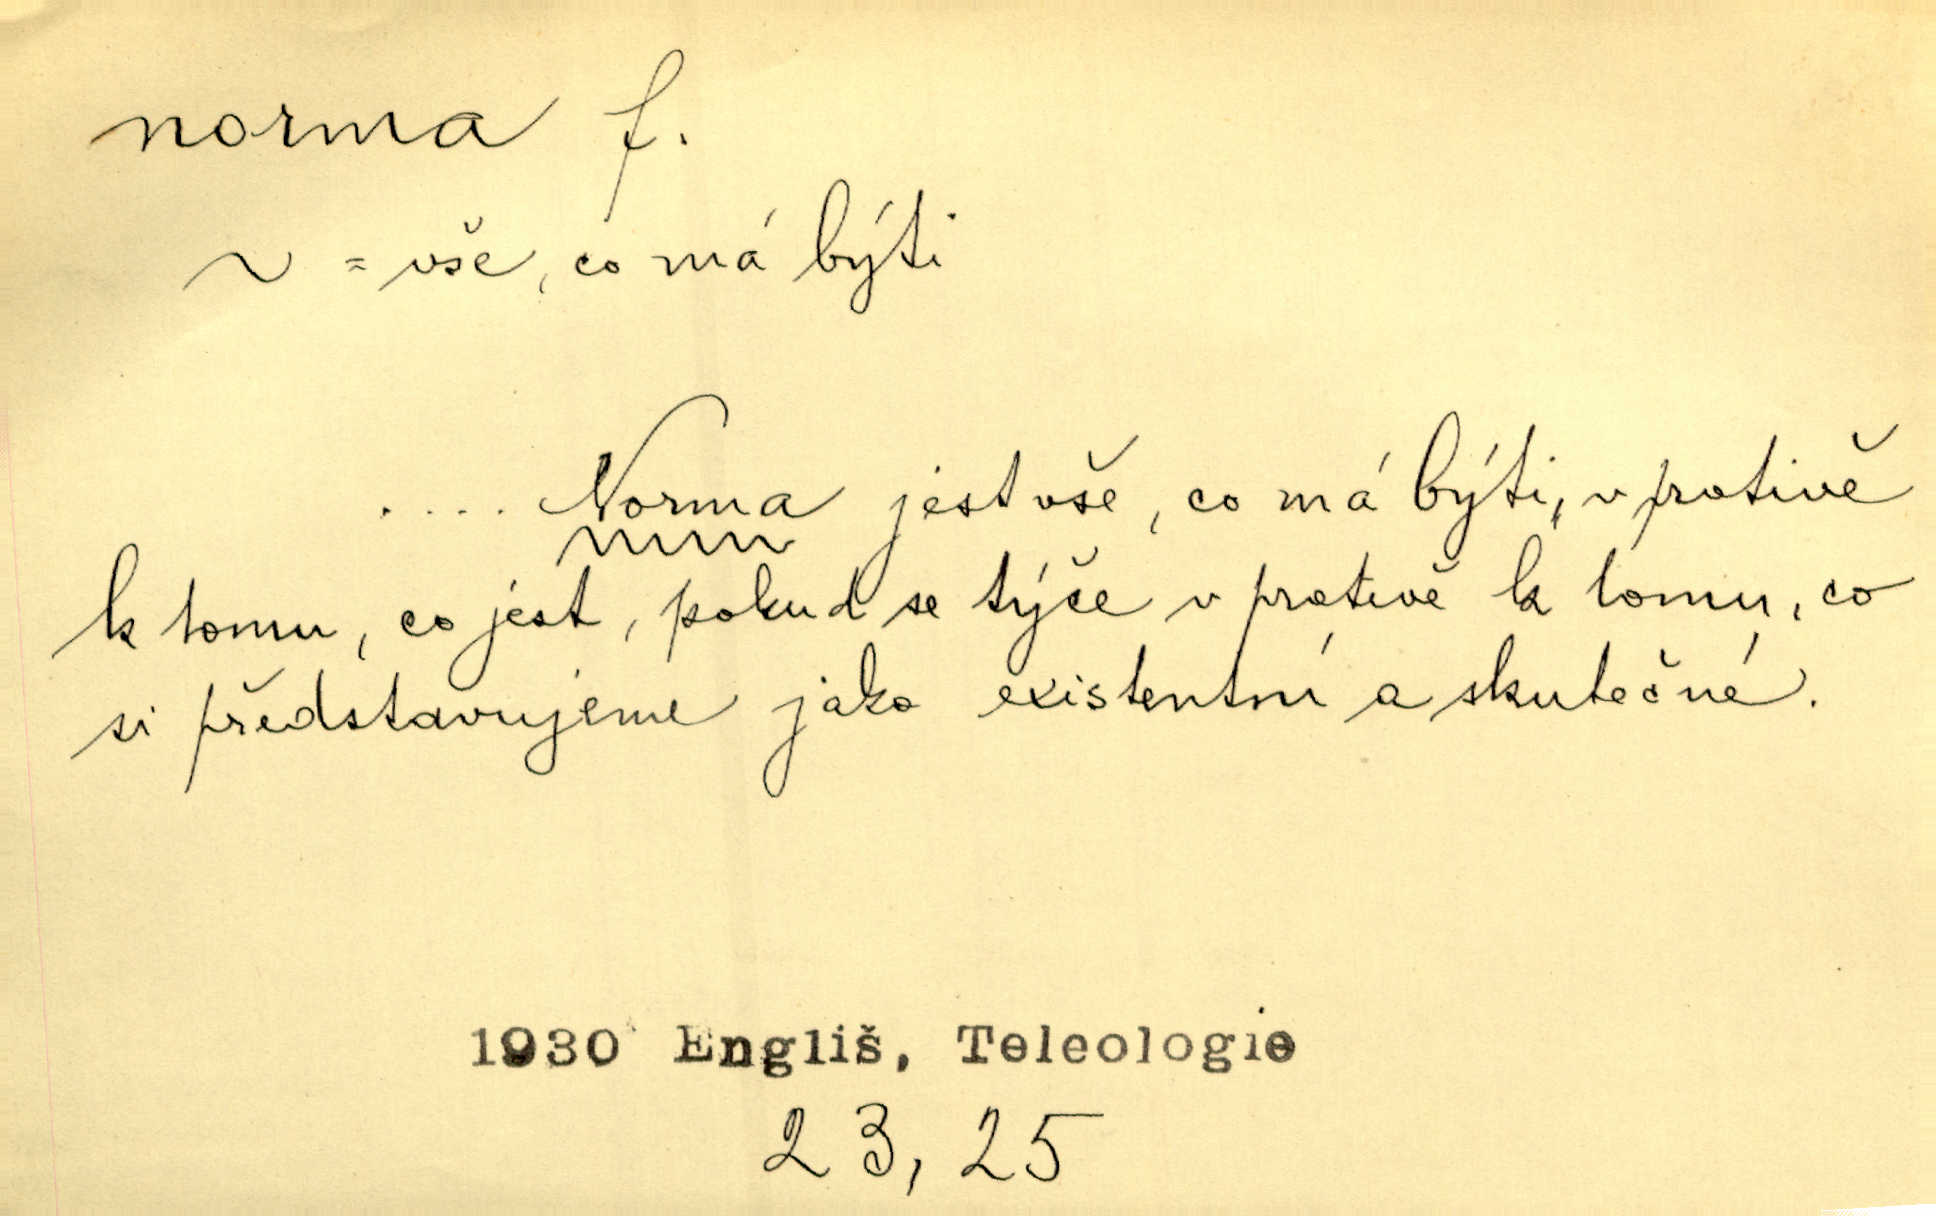 norma f.
~ = vše, co má býti
.... Norma jest vše, co má býti, v protivě
k tomu, co jest, pokud se týče v protivě k tomu, co
si představujeme jako existentní a skutečné.
1930 Engliš, Teleologie
23, 25